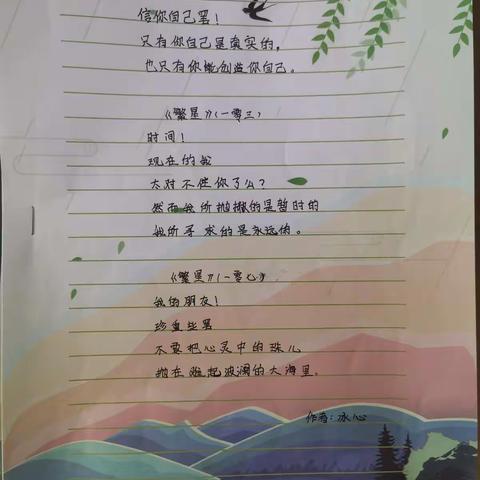 信你自己罢！
只有你自己是真实的，
也只有你能创造你自己。
《繁星》（一零三）
时间！
现在的我
太对不住你了么？
然而我所抛撇的是暂时的
我所寻求的是永远的。
《繁星》（一零七）
我的朋友！
珍重些罢
不要把心灵中的珠儿
抛在难起波澜的大海里。
作者：冰心